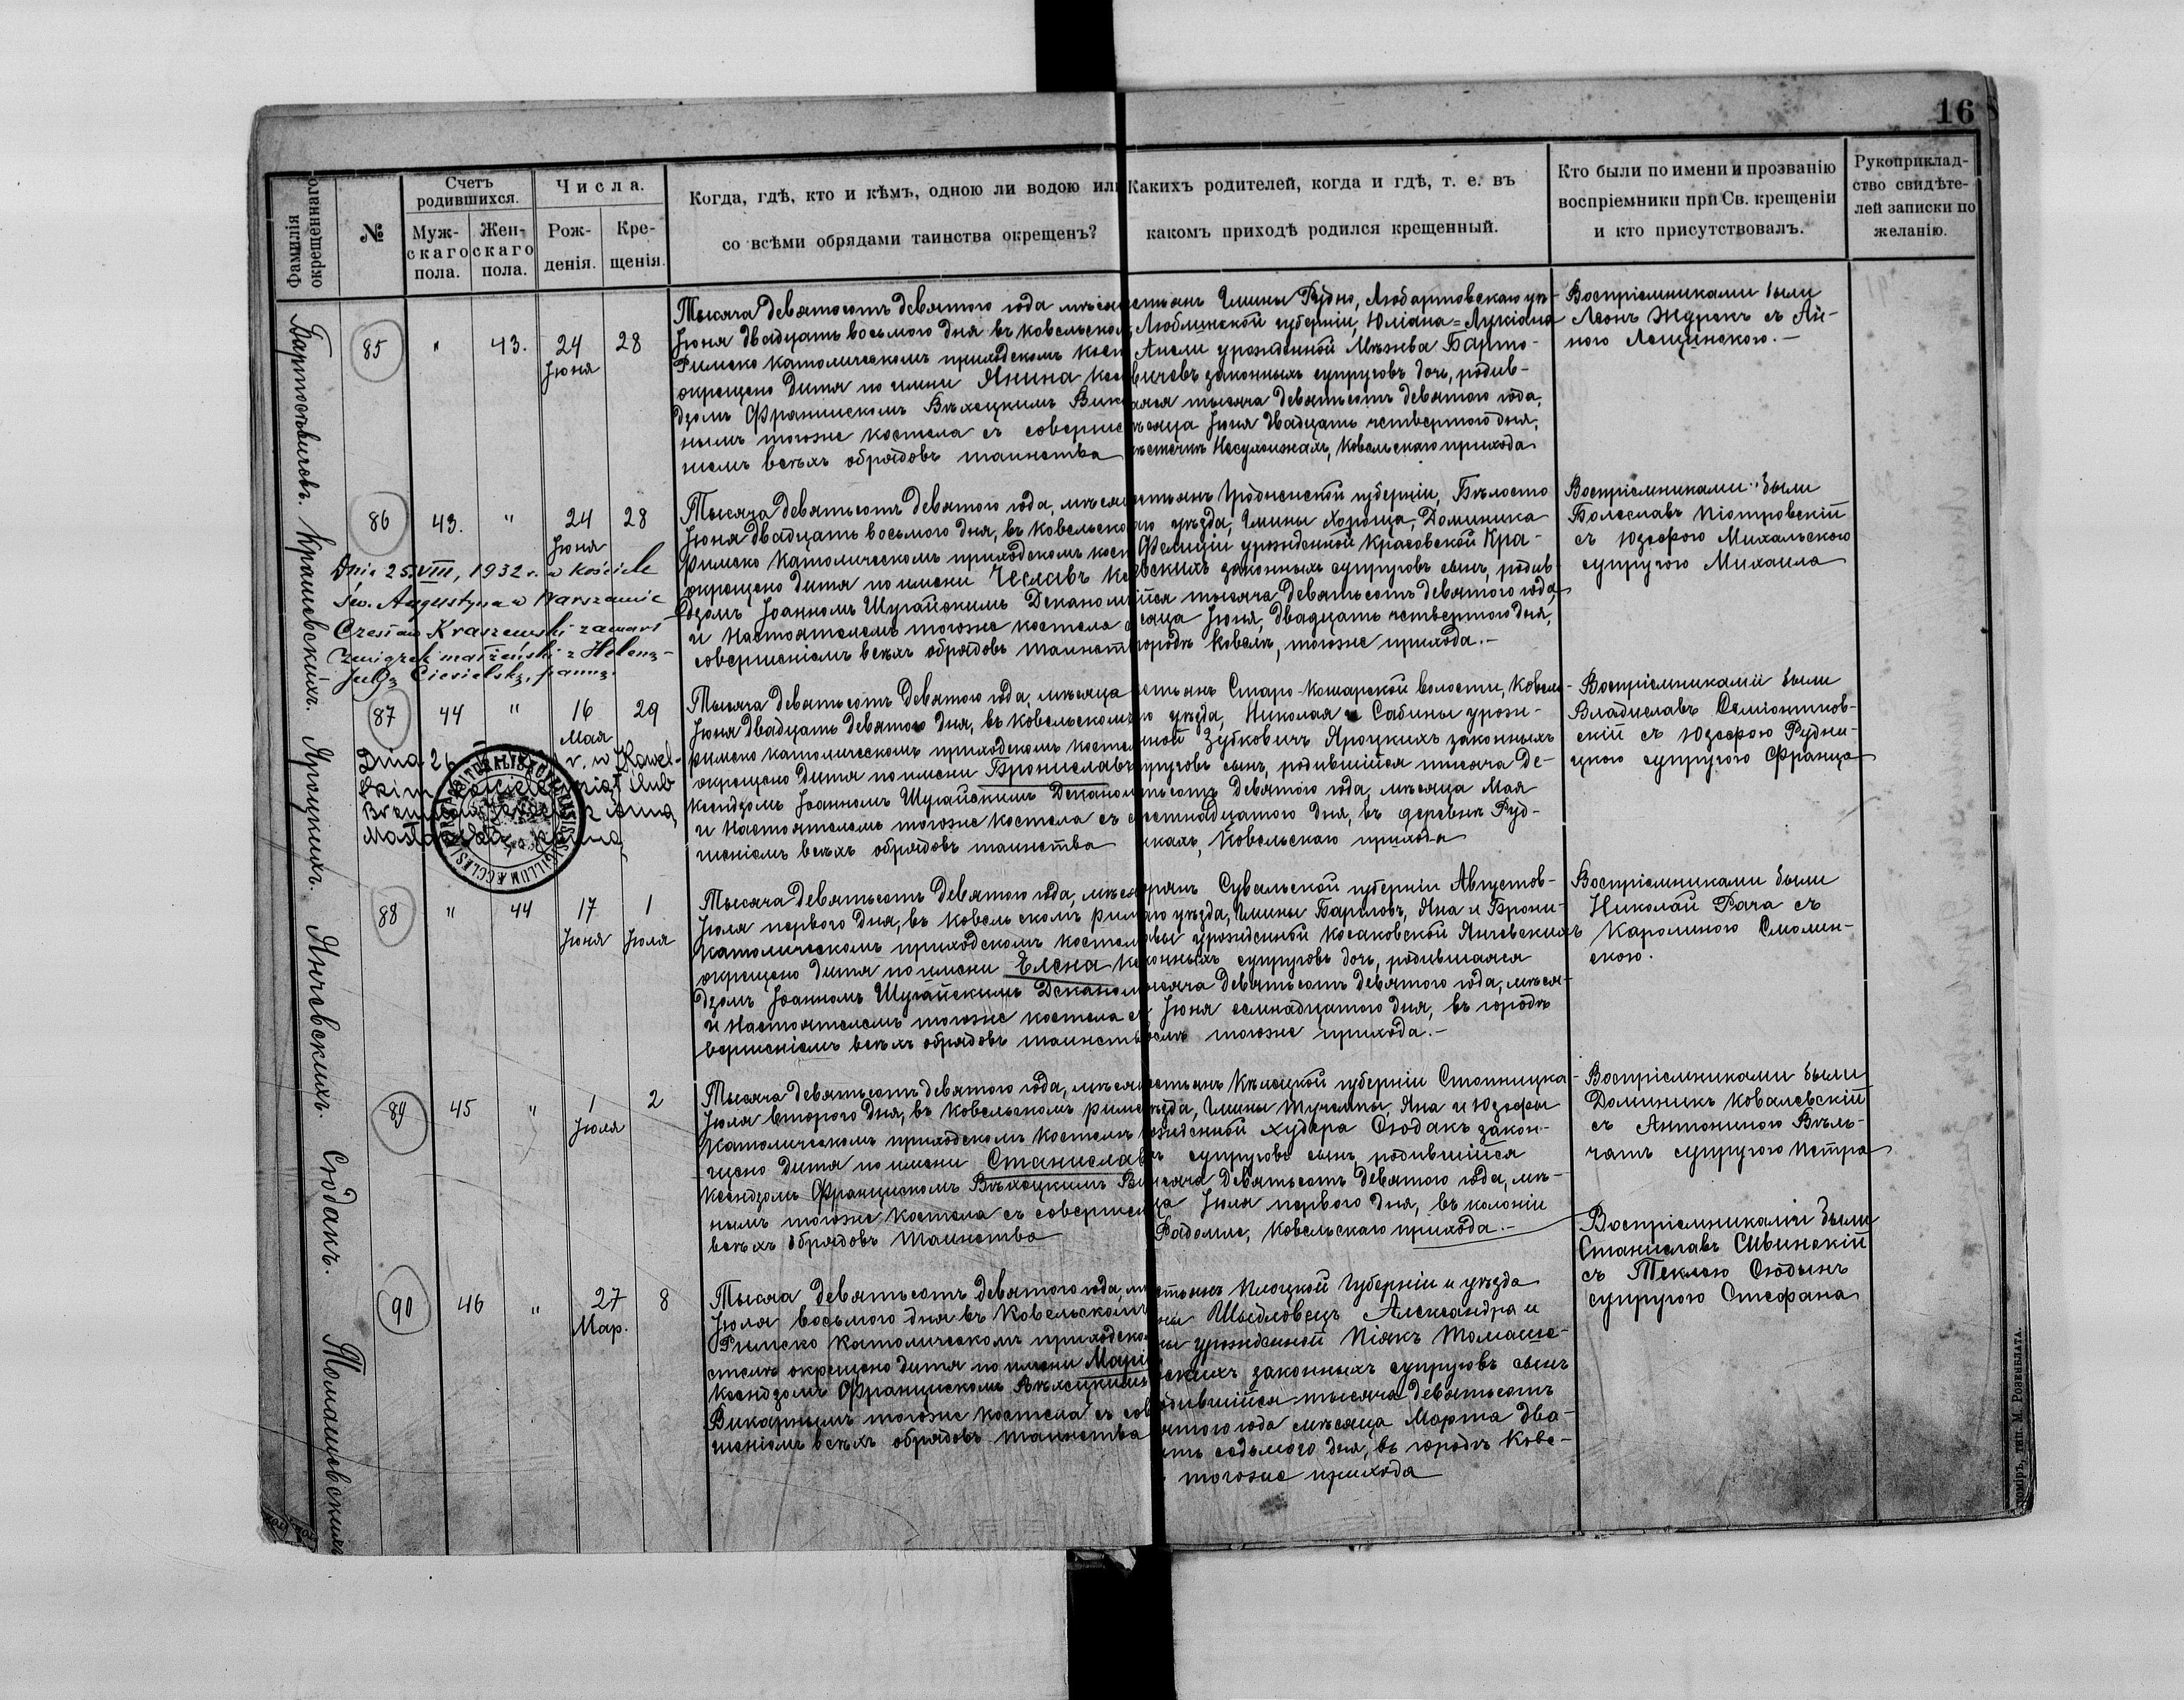 16
Фамилія окрещеннаго
№
Счетъ родившихся.
Муж-скаго пола.
Жен-скаго пола.
Числа.
Рож-денія.
Кре-щенія.
Когда, гдѣ, кто и кѣмъ, одною ли водою или
со всѣми обрядами таинства окрещенъ?
Какихъ родителей, когда и гдѣ, т. е. въ
какомъ приходѣ родился крещенный.
Кто были по имени и прозванію
воспріемники при Св. крещеніи
и кто присутствовалъ.
Рукоприклад-
ство свидѣте-
лей записки по
желанію.
85 " 43. 24 Іюня 28
Тысяча девятьсотъ девятого года мѣся
Іюня двадцать восьмого дня въ Ковельском
Римско католическомъ приходскомъ кост
окрещено дитя по имени Янина ксе
дзомъ Францискомъ Вѣхоцкимъ Вика
нымъ тогоже костела съ соверше
ніемъ всѣхъ обрядовъ таинства
стьянъ Гмины Рудно, Любартовскаго уѣ-
Люблинской губерніи, Юліана=Лукіана
Анели урожденной Мѣжва Барто-
вичевъ законныхъ супруговъ дочь, родив-
аяся тысяча девятьсотъ девятого года,
ѣсяца Іюня двадцать четвертого дня,
ѣстечкѣ Несухоижахъ, Ковельскаго прихода
Воспріемниками были
Леонъ Журекъ съ Ан-
ною Лещинскою.-
86 43. " 24 Іюня 28
Dnia 25.VIII, 1932 r. w kościele
św. Augustyna w Warszawie
Czesław Kraszewski zawarł
związek małżeński z Heleną
Julją Ciesielską, panną.
Тысяча девятьсотъ девятого года, мѣся
Іюня двадцать восьмого дня, въ Ковельско
римско католическомъ приходскомъ кост
окрещено дитя по имени Чеславъ кс
дзомъ Іоанномъ Шугайскимъ Деканом
и Настоятелемъ тогоже костела с
совершеніемъ всѣхъ обрядовъ таинст
стьянъ Гродненской губерніи, Бѣлосто
аго уѣзда, Гмины Хороща, Доминика
Фелиціи урожденной Красовской Кра-
вскихъ законныхъ супруговъ сынъ, родив-
ійся тысяча девятьсотъ девятого года,
сяца Іюня, двадцать четвертого дня,
городѣ Ковелѣ, тогоже прихода.-
Воспріемниками были
Болеславъ Піотровскій
съ Юзефою Михальскою
супругою Михаила
87 44 " 16 Мая 29
Dnia 26
r. w Kowel-
skim kościele
wziął ślub
Тысяча девятьсотъ девятого года, мѣсяца
Іюня двадцать девятого дня, въ Ковельскомъ
римско католическомъ приходскомъ косте
окрещено дитя по имени Брониславъ
ксендзомъ Іоанномъ Шугайскимъ Деканом
и Настоятелемъ тогоже костела съ с
шеніемъ всѣхъ обрядовъ таинства
стьянъ Старо-Кошарской волости, Ковель-
го уѣзда, Николая и Сабины урож-
нной Зубковичъ Яроцкихъ законныхъ
пруговъ сынъ, родившійся тысяча де-
тьсотъ девятого года, мѣсяца Мая
стнадцатого дня, въ деревнѣ Руд-
икахъ, Ковельскаго прихода
Воспріемниками были
Владиславъ Семіонтков-
скій съ Юзефою Рудни-
цкою супругою Франца
88 " 44 17 Іюня 1 Іюля
Тысяча девятьсотъ девятого года, мѣся
Іюля первого дня, въ Ковельскомъ рим
католическомъ приходскомъ костел
окрещено дитя по имени Елена кс
дзомъ Іоанномъ Шугайскимъ Деканом
и Настоятелемъ тогоже костела с
вершеніемъ всѣхъ обрядовъ таинств
орянъ Сувалкской губерніи Августов-
аго уѣзда, Гмины Барглов, Яна и Брони-
авы урожденной Косаковской Янчевскихъ
конныхъ супруговъ дочь, родившаяся
ысяча девятьсотъ девятого года, мѣся-
Іюня семнадцатого дня, въ городѣ
велѣ тогоже прихода.-
Воспріемниками были
Николай Рача съ
Каролиною Смолин-
скою.
89 45 " 1 Іюля 2
Тысяча девятьсотъ девятого года, мѣся
Іюля второго дня, въ Ковельскомъ римс
католическомъ приходскомъ костелѣ
щено дитя по имени Станислав
ксендзомъ Францискомъ Вѣхоцкимъ Ви
нымъ тогоже костела съ соверше
всѣхъ обрядовъ таинства
стьянъ Кѣлецкой губерніи Стопницка-
ѣзда, Гмины Тучемпы, Яна и Юзефы
ожденной Худера Сюдакъ закон-
ъ супруговъ сынъ, родившійся
ысяча девятьсотъ девятого года, мѣ-
ца Іюля первого дня, въ колоніи
Радомле, Ковельскаго прихода.-
Воспріемниками были
Доминикъ Ковалевскій
съ Антониною Вѣль-
чатъ супругою Петра
90 46 " 27 Мар. 8
Тысяча девятьсотъ девятого года, мѣ
Іюля восьмого дня въ Ковельскомъ
Римско католическомъ приходско
стелѣ окрещено дитя по имени Марі
ксендзомъ Францискомъ Вѣхоцкимъ
Викарнымъ тогоже костела съ сов
шеніемъ всѣхъ обрядовъ таинства
стьянъ Плоцкой Губерніи и уѣзда
ны Шыдловецъ Александра и
ны урожденной Піякъ Томаше-
вскихъ законныхъ супруговъ сынъ
одившійся тысяча девятьсотъ
вятого года мѣсяца Марта два-
ать седьмого дня, въ городѣ Кове-
тогоже прихода
Воспріемниками были
Станиславъ Свинскій
съ Теклею Сюдынъ
супругою Стефана
Бартосѣвичовъ.
Крашевскихъ.
Яроцкихъ.
Янчевскихъ.
Сюдакъ.
Томашовскихъ
томіръ, тип. М. Розенблата.